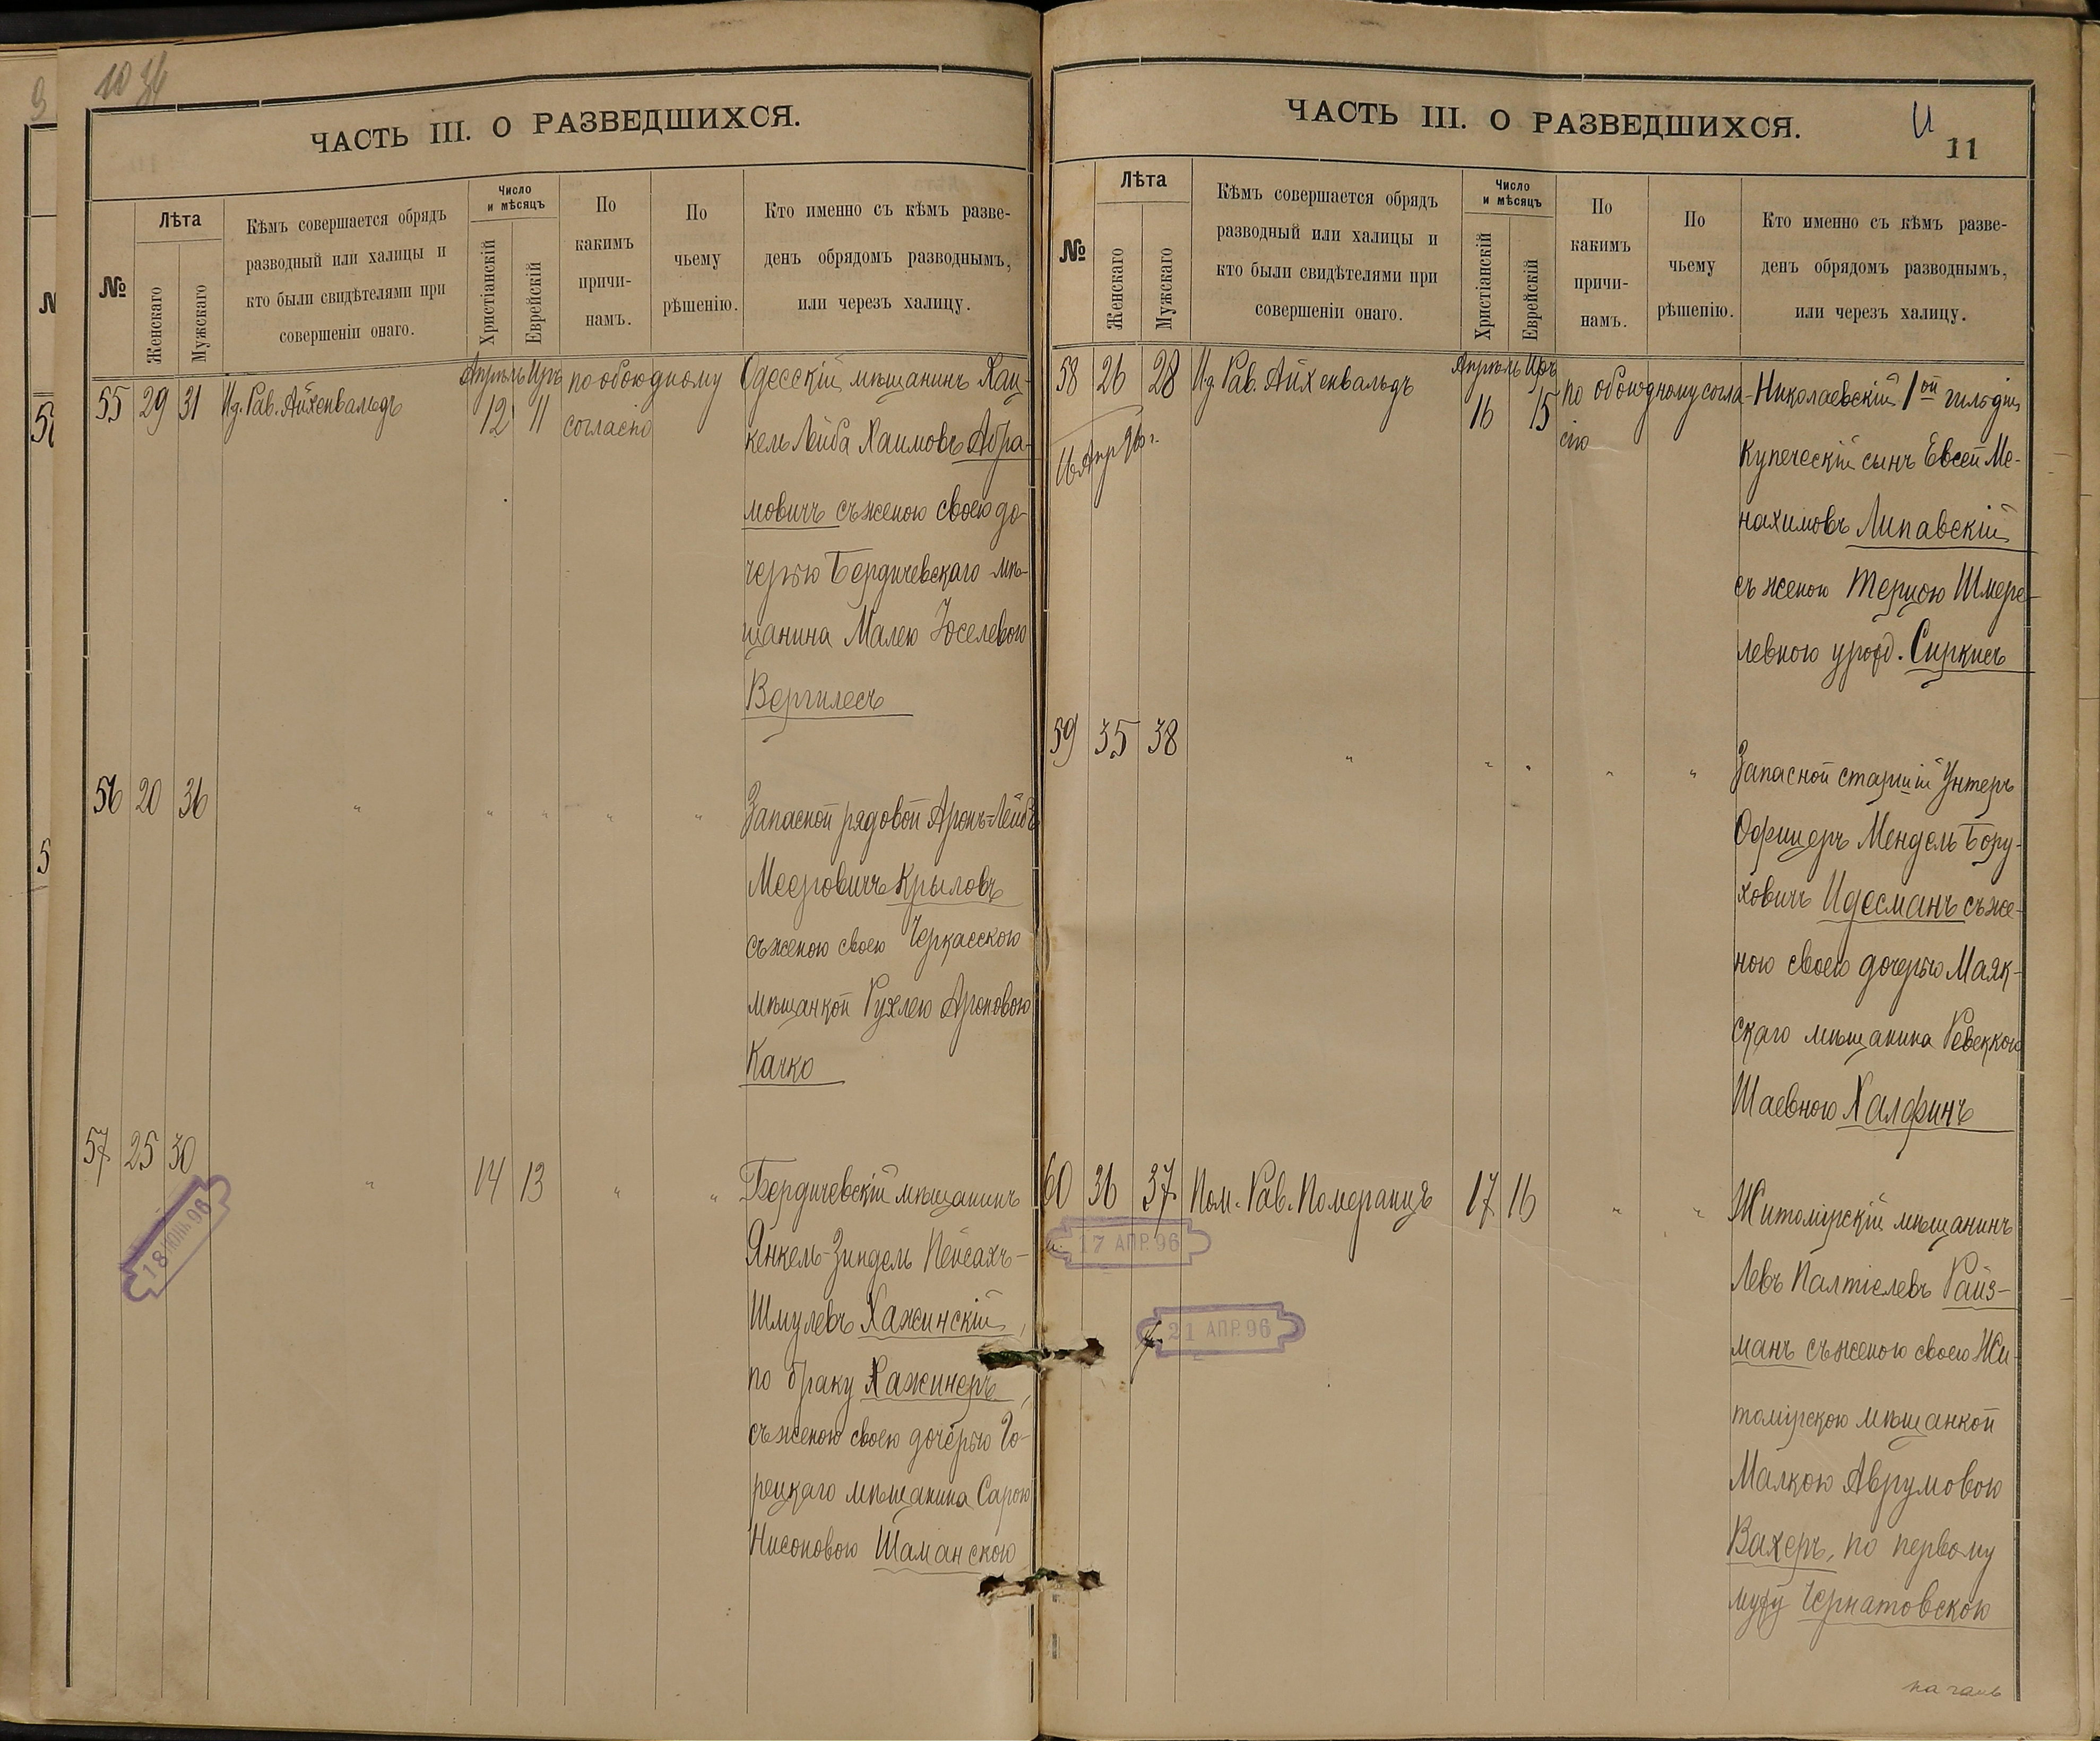 10
ЧАСТЬ III. О РАЗВЕДШИХСЯ.
№
Лѣта
Женскаго
Мужскаго
Кѣмъ совершается обрядъ
разводный или халицы и
кто были свидѣтелями при
совершеніи онаго.
Число
и мѣсяцъ
Христіанскій
Еврейскій
По
какимъ
причи-
намъ.
По
чьему
рѣшенію.
Кто именно съ кѣмъ разве-
денъ обрядомъ разводнымъ,
или черезъ халицу.
55 29 31 Ид. Рав. Айхенвальдъ
Апрѣль Іръ
12 11
по обоюдному
согласію
Одесскій мѣщанинъ Хац-
кель Лейба Хаимовъ Абра-
мовичъ съ женою своею до-
черью Бердичевскаго мѣ-
щанина Малею Іоселевою
Вергилесъ
56 20 36 " " " " "
Запасной рядовой Аронъ-Лейбъ
Мееровичъ Крыловъ
съ женою своею Черкасскою
мѣщанкой Рухлею Ароновою
Качко
57 25 30 " 14 13 " "
18 ІЮНЬ 96
Бердичевскій мѣщанинъ
Янкель-Зиндель Пейсахъ-
Шмулевъ Хажинскій,
по браку Хажинеръ,
съ женою своею дочерью Го-
рецкаго мѣщанина Сарою
Нисоновою Шаманскою
ЧАСТЬ III. О РАЗВЕДШИХСЯ.
11
№
Лѣта
Женскаго
Мужскаго
Кѣмъ совершается обрядъ
разводный или халицы и
кто были свидѣтелями при
совершеніи онаго.
Число
и мѣсяцъ
Христіанскій
Еврейскій
По
какимъ
причи-
намъ.
По
чьему
рѣшенію.
Кто именно съ кѣмъ разве-
денъ обрядомъ разводнымъ,
или черезъ халицу.
58 26 28 Ид. Рав. Айхенвальдъ
16 Апр 96 г.
Апрѣль Іръ
16 15
по обоюдному согла-
сію
Николаевскій 1ой гильдіи
купеческій сынъ Евсей Ме-
нахимовъ Липавскій
съ женою Терцою Шмере-
левною урожд. Сиркисъ
59 35 38 " " " " "
Запасной старшій Унтеръ
Офицеръ Мендель Бору-
ховичъ Идесманъ съ же-
ною своею дочерью Маяк-
скаго мѣщанина Ревеккою
Шаевною Халфинъ
60 36 37 Пом. Рав. Померанцъ 17 16 " "
17 АПР. 96
21 АПР. 96
Житомірскій мѣщанинъ
Левъ Палтіелевъ Райз-
манъ съ женою своею Жи-
томірскою мѣщанкой
Малкою Аврумовою
Вахеръ, по первому
мужу Чернатовскою